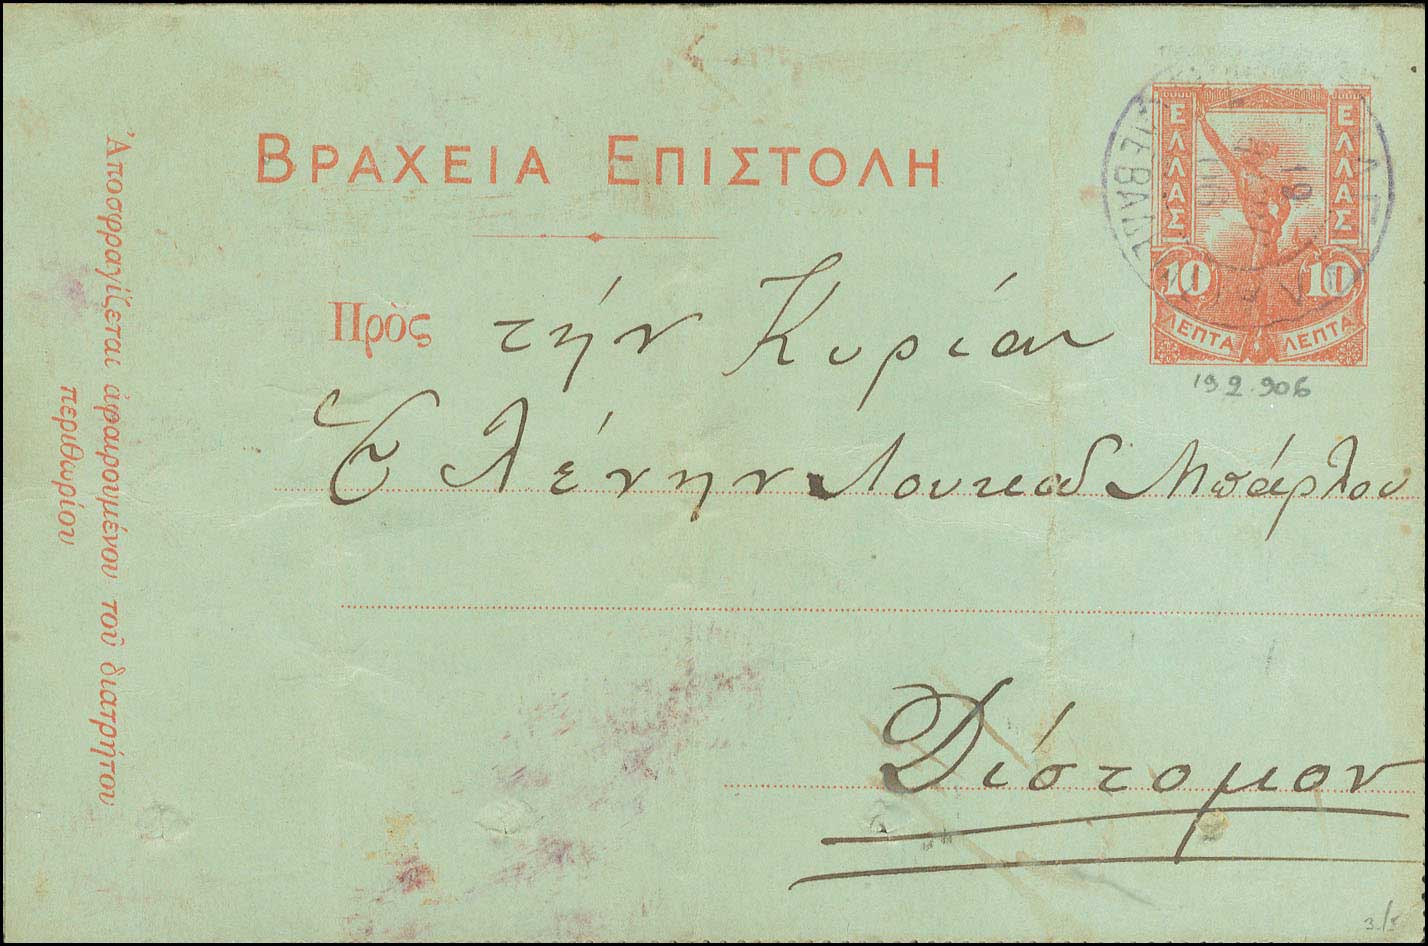 Ἀποσφραγίζεται ἀφαιρουμένου τοῦ διατρήτου
περιθωρίου
ΒΡΑΧΕΙΑ ΕΠΙΣΤΟΛΗ
ΕΛΛΑΣ ΕΛΛΑΣ
10 10
ΛΕΠΤΑ ΛΕΠΤΑ
19 2 906
Πρὸς τήν Κυρίαν
Ἑλένην Λουκᾶ Μπάρλου
Δίστομον
3/5